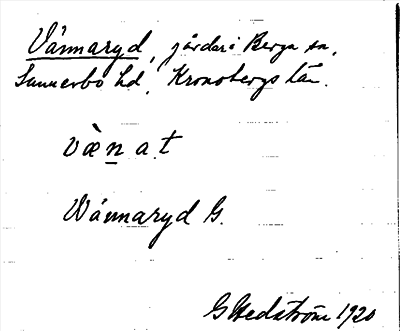 Vännaryd, gårdar i Berga sn,
Sunnerbo hd, Kronobergs län.
væ̀n̲a.t
Wännaryd G.
G Hedström 1920